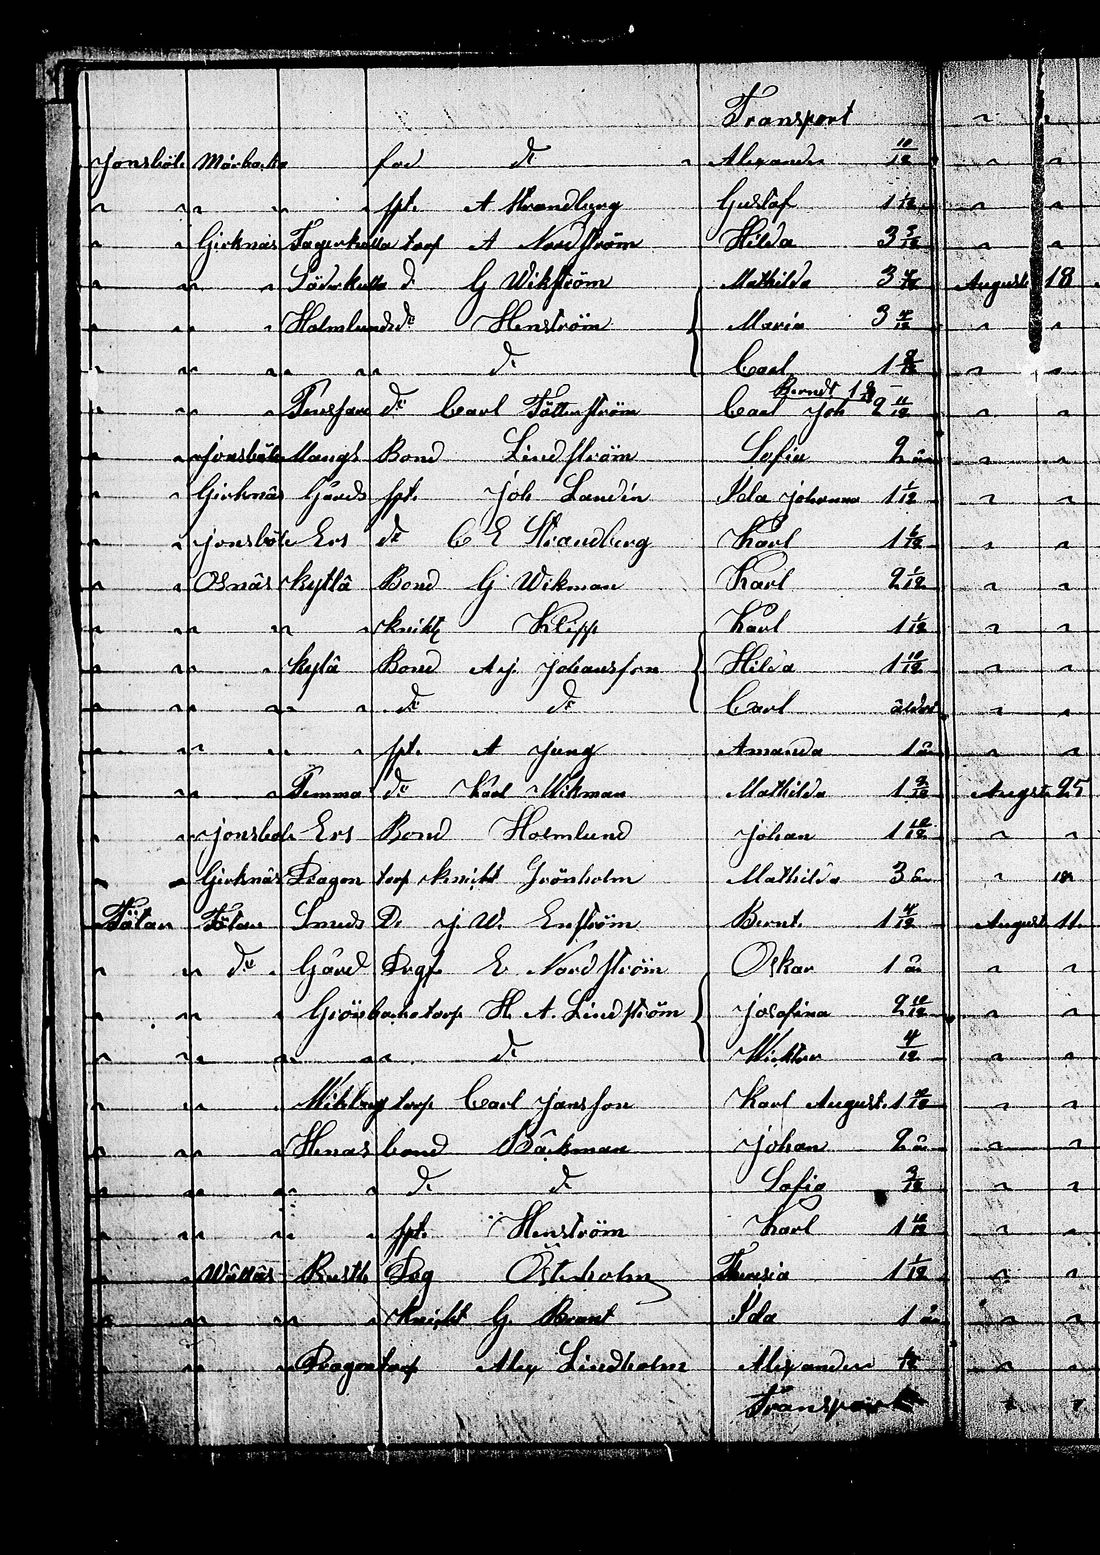 Transport " "
Jonsböle Mårbacka fod d:o " Alexander 10/12 " "
" " " " spt. A Strandberg Gustaf 1 " "
" " Girknäs Fagerkulla torp A Nordström Hilda 3 3/12 " "
" " " Söderkulla d:o G Wikström Mathilda 3 Augusti 18
" " " Holmlunds d:o Henström { Maria 3 4/12 " "
" " " " " d:o Carl 1 " "
Berndt 1
" " " d:o Carl Fätterström Carl Joh 2 11/12 " "
" Jonsböle Mangs Bond Lindström Sofia 2 år " "
" Girknäs Gårds spt. Joh Landin Ida Johanna 1 1/12 " "
" Jonsböle Ers d:o C E Strandberg Karl 1 " "
" Osnäs Kytlä Bond G Wikman Karl 2 1/12 " "
" " " " Knikt Klipp Karl 1 1/12 " "
" " " Kylä Bond A.j. Johansson { Hilda 1 10/12 " "
" " " " d:o d:o Carl " "
" " " " spt. A Jung Amanda 1 år " "
" " " Temma d:o Karl Wikman Mathilda 1 August 25
" Jonsböle Ers Bond Holmlund Johan 1 10/12 " "
" Girknäs Dragon torp Knikt Grönholm Mathilda 3 år " 18
Fötan Fötan Smeds D:o J. W. Enström Bernt 1 4/12 August 11
" d:o " Gård Drgt. E Nordström Oskar 1 år " "
" " " Grönbacka torp H. A. Lindström { Josefina 2 10/12 " "
" " " " d:o Wicktor 4/12 " "
" " " torp Carl Jansson Karl August 1 " "
" " " Henas bond Bäckman Johan 2 år " "
" " " " d:o d:o Sofia 3/12 " "
" " " " spt. Henström Karl 1 10/12 " "
" Wättäs Rusth Drg Östenholm Theresia 1 1/12 " "
" " " " Knikt G. Brant Ida 1 år " "
" " " Dragontorp Alex Lindholm Alexander " "
Transport